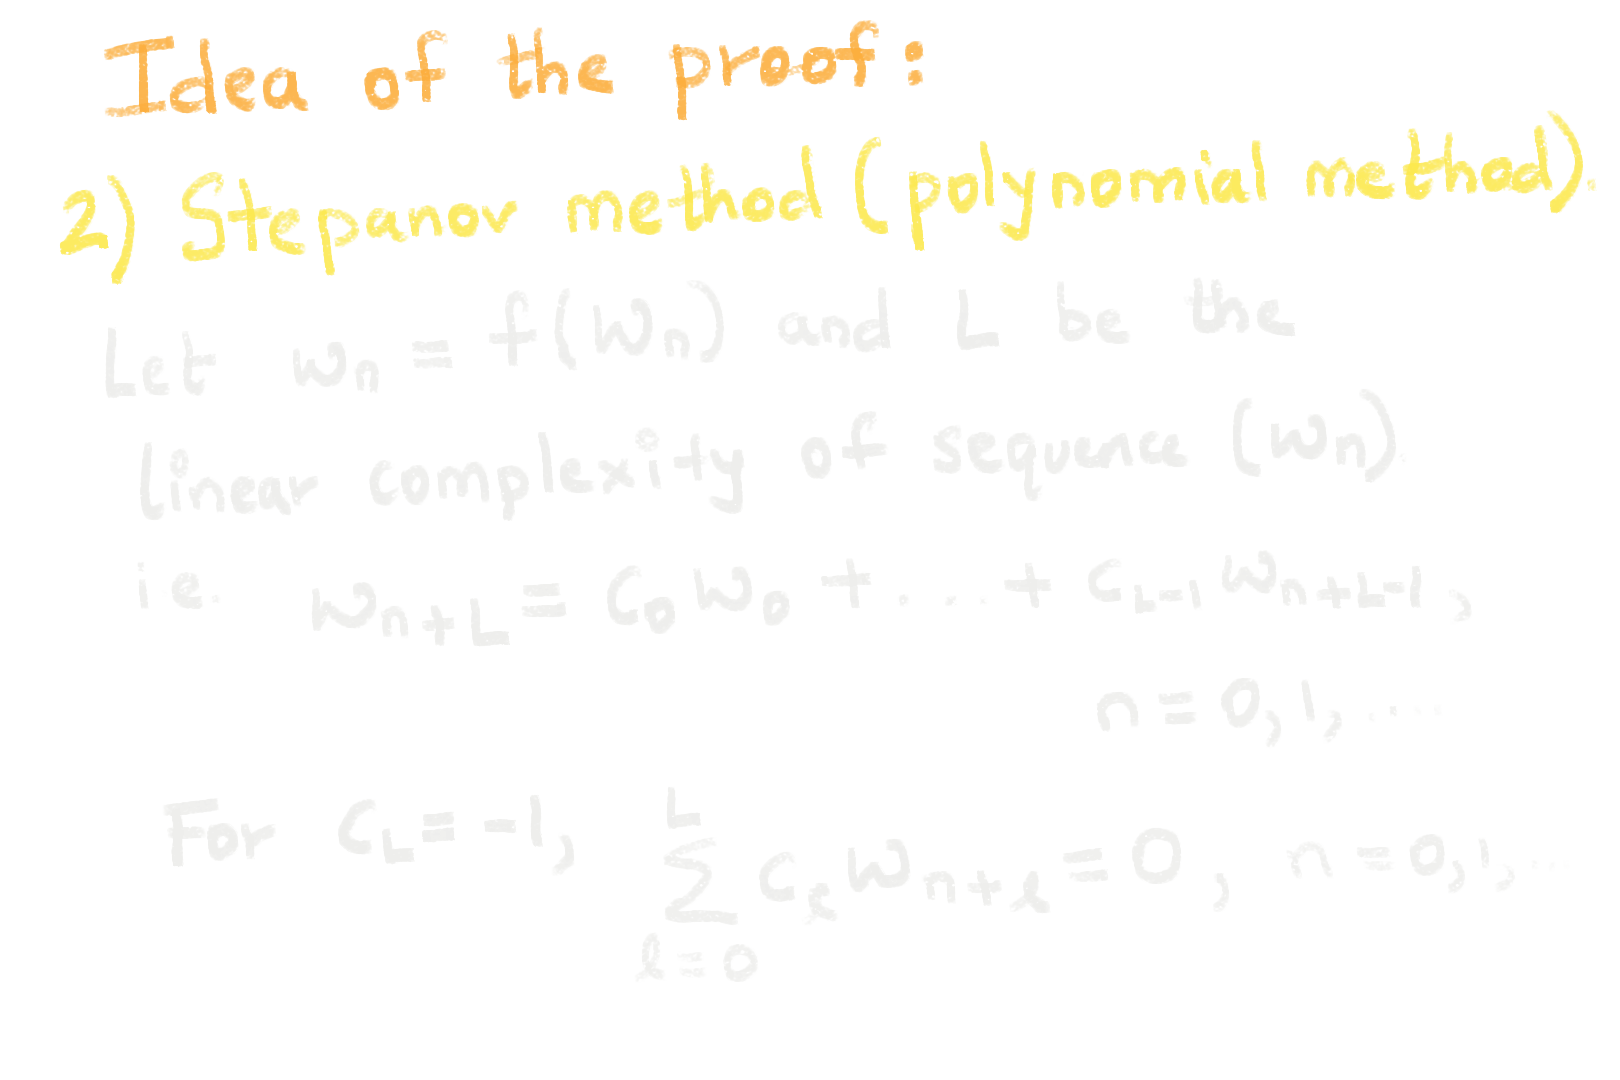 Idea of the proof:
2) Stepanov method (polynomial method).
Let wₙ = f(Wₙ) and L be the
linear complexity of sequence (wₙ)
i.e. wₙ₊L = C₀ w₀ + ... + c_L-1 wₙ₊L-1,
n = 0, 1, ...
For c_L = -1, ∑_{ℓ=0}^{L} c_ℓ wₙ₊ℓ = 0, n = 0, 1, ...